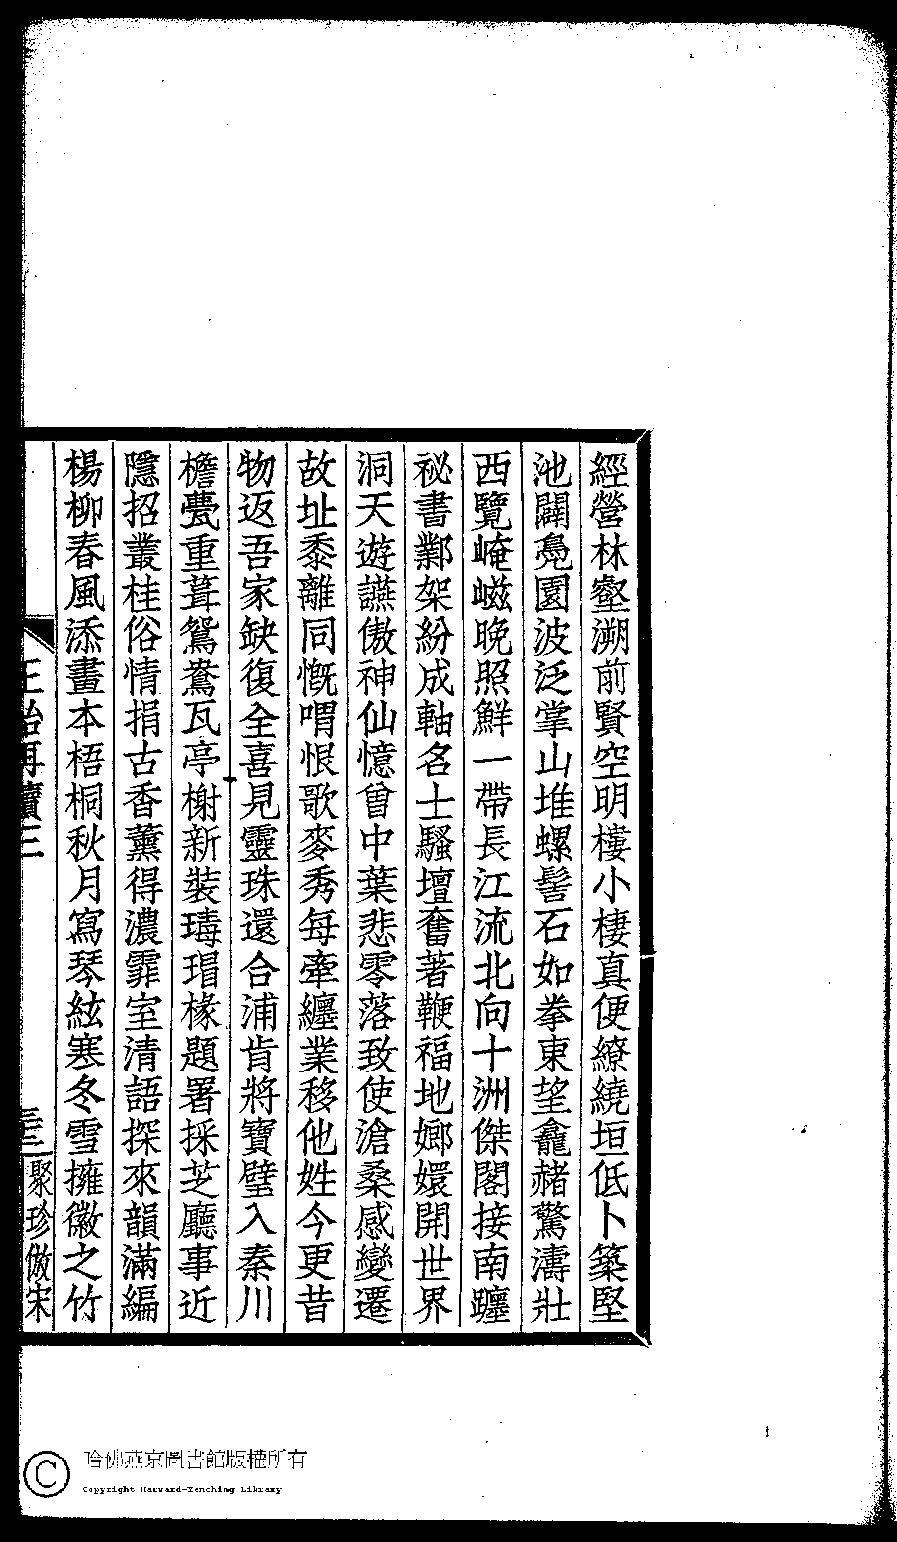 經營林壑溯前賢空明樓小棲真便繚繞垣低卜築堅
池闢鳧園波泛掌山堆螺髻石如拳東望龕赭驚濤壯
西覽崦嵫晚照鮮一帶長江流北向十洲傑閣接南躔
祕書鄴架紛成軸名士騷壇奮著鞭福地嫏嬛開世界
洞天遊讌傲神仙憶曾中葉悲零落致使滄桑感變遷
故址黍離同慨喟恨歌麥秀每牽纏業移他姓今更昔
物返吾家缺復全喜見靈珠還合浦肯將寶璧入秦川
檐甍重葺鴛鴦瓦亭榭新裝瑇瑁椽題署採芝廳事近
隱招叢桂俗情捐古香薰得濃霏室清語探來韻滿編
楊柳春風添畫本梧桐秋月寫琴絃寒冬雪擁徽之竹
三
聚珍倣宋
哈佛燕京圖書館版權所有
Copyright Harvard-Yenching Library